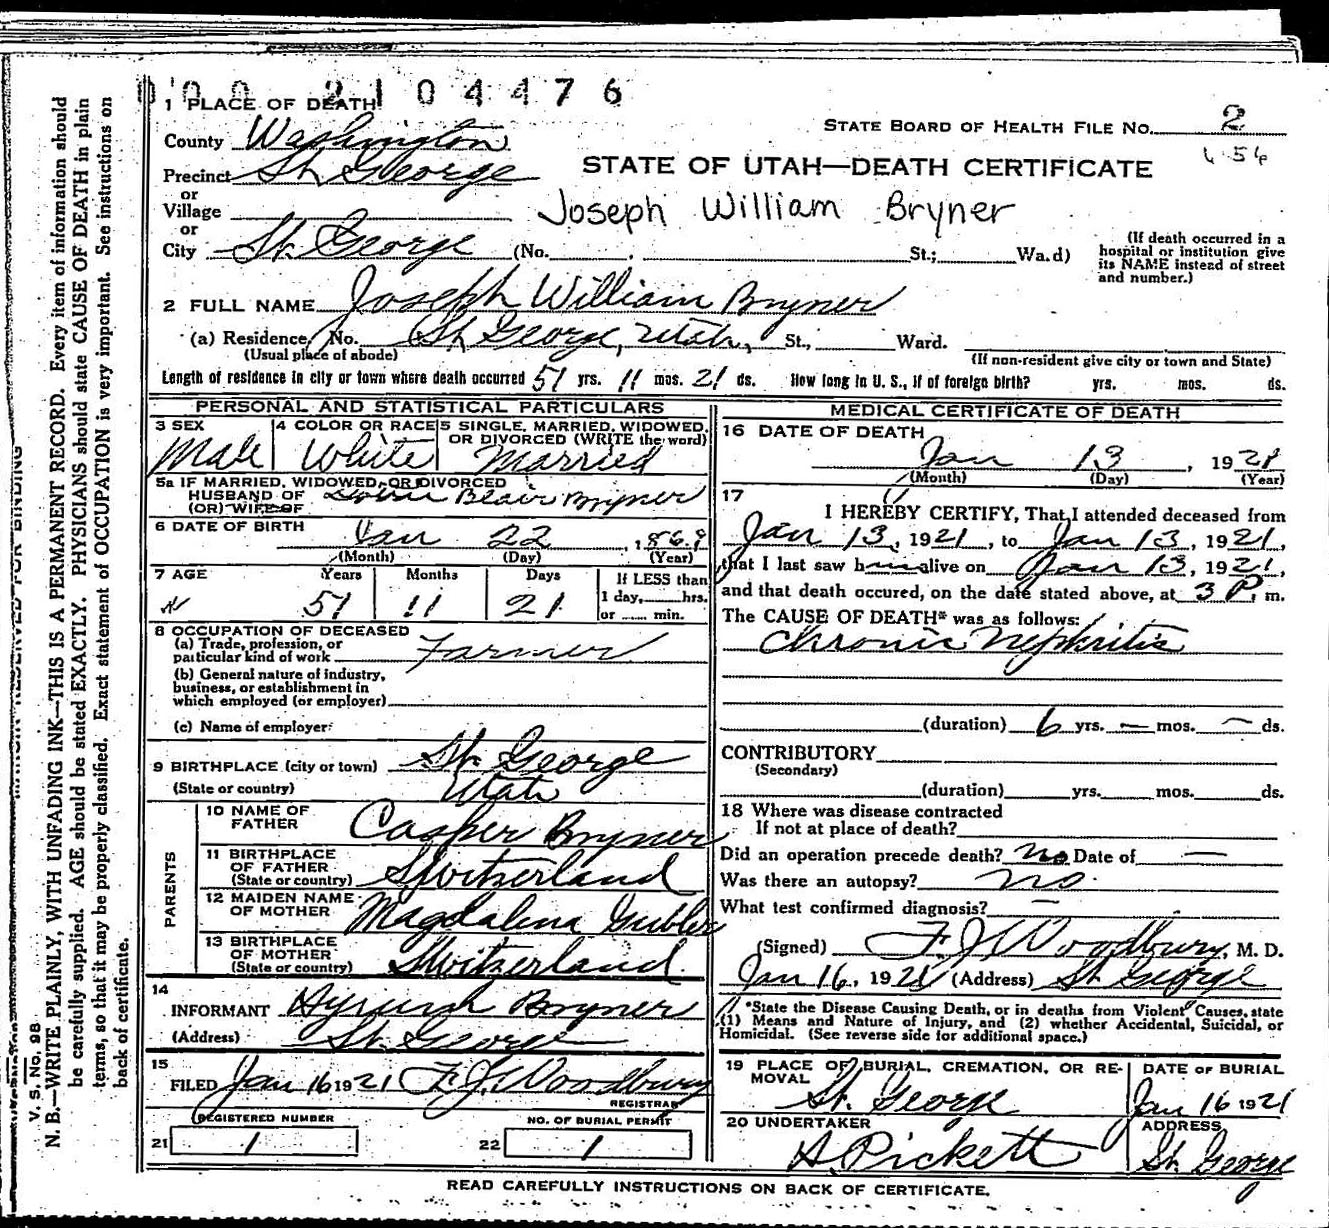 00 2104476
1 PLACE OF DEATH
STATE BOARD OF HEALTH FILE NO. 2
County Washington
Precinct St. George
STATE OF UTAH—DEATH CERTIFICATE
or
Village
Joseph William Bryner
or
City St. George (No. St.; Wa.d)
(If death occurred in a hospital or institution give its NAME instead of street and number.)
2 FULL NAME Joseph William Bryner
(a) Residence, No. St. George, Utah, St., Ward.
(Usual place of abode) (If non-resident give city or town and State)
Length of residence in city or town where death occurred 51 yrs. 11 mos. 21 ds. How long in U. S., if of foreign birth? yrs. mos. ds.
PERSONAL AND STATISTICAL PARTICULARS
3 SEX 4 COLOR OR RACE 5 SINGLE, MARRIED, WIDOWED, OR DIVORCED (WRITE the word)
Male White Married
5a IF MARRIED, WIDOWED, OR DIVORCED
HUSBAND OF Blair Bryner
(OR) WIFE OF
6 DATE OF BIRTH
Jan 22, 1869
(Month) (Day) (Year)
7 AGE Years Months Days If LESS than
51 11 21 1 day, hrs.
or min.
8 OCCUPATION OF DECEASED
(a) Trade, profession, or
particular kind of work Farmer
(b) General nature of industry,
business, or establishment in
which employed (or employer)
(c) Name of employer
9 BIRTHPLACE (city or town) St. George
(State or country) Utah
PARENTS
10 NAME OF FATHER Casper Bryner
11 BIRTHPLACE OF FATHER (State or country) Switzerland
12 MAIDEN NAME OF MOTHER Magdalina Gubler
13 BIRTHPLACE OF MOTHER (State or country) Switzerland
14
INFORMANT Hyrum Bryner
(Address) St. George
15
FILED Jan 16 1921 F. J. Woodbury
REGISTRAR
REGISTERED NUMBER NO. OF BURIAL PERMIT
21 1 22 1
MEDICAL CERTIFICATE OF DEATH
16 DATE OF DEATH
Jan 13, 1921
(Month) (Day) (Year)
17
I HEREBY CERTIFY, That I attended deceased from
Jan 13, 1921, to Jan 13, 1921,
that I last saw him alive on Jan 13, 1921,
and that death occured, on the date stated above, at 3 P. m.
The CAUSE OF DEATH* was as follows:
Chronic Nephritis
(duration) 6 yrs. — mos. — ds.
CONTRIBUTORY
(Secondary)
(duration) yrs. mos. ds.
18 Where was disease contracted
If not at place of death?
Did an operation precede death? No Date of —
Was there an autopsy? No.
What test confirmed diagnosis? —
(Signed) F. J. Woodbury, M. D.
Jan 16, 1921 (Address) St. George
*State the Disease Causing Death, or in deaths from Violent Causes, state
(1) Means and Nature of Injury, and (2) whether Accidental, Suicidal, or
Homicidal. (See reverse side for additional space.)
19 PLACE OF BURIAL, CREMATION, OR REMOVAL DATE OF BURIAL
St. George Jan 16 1921
20 UNDERTAKER ADDRESS
A. Pickett St. George
READ CAREFULLY INSTRUCTIONS ON BACK OF CERTIFICATE.
V. S. No. 98
N. B.—WRITE PLAINLY, WITH UNFADING INK—THIS IS A PERMANENT RECORD. Every item of information should
be carefully supplied. AGE should be stated EXACTLY. PHYSICIANS should state CAUSE OF DEATH in plain
terms, so that it may be properly classified. Exact statement of OCCUPATION is very important. See instructions on
back of certificate.